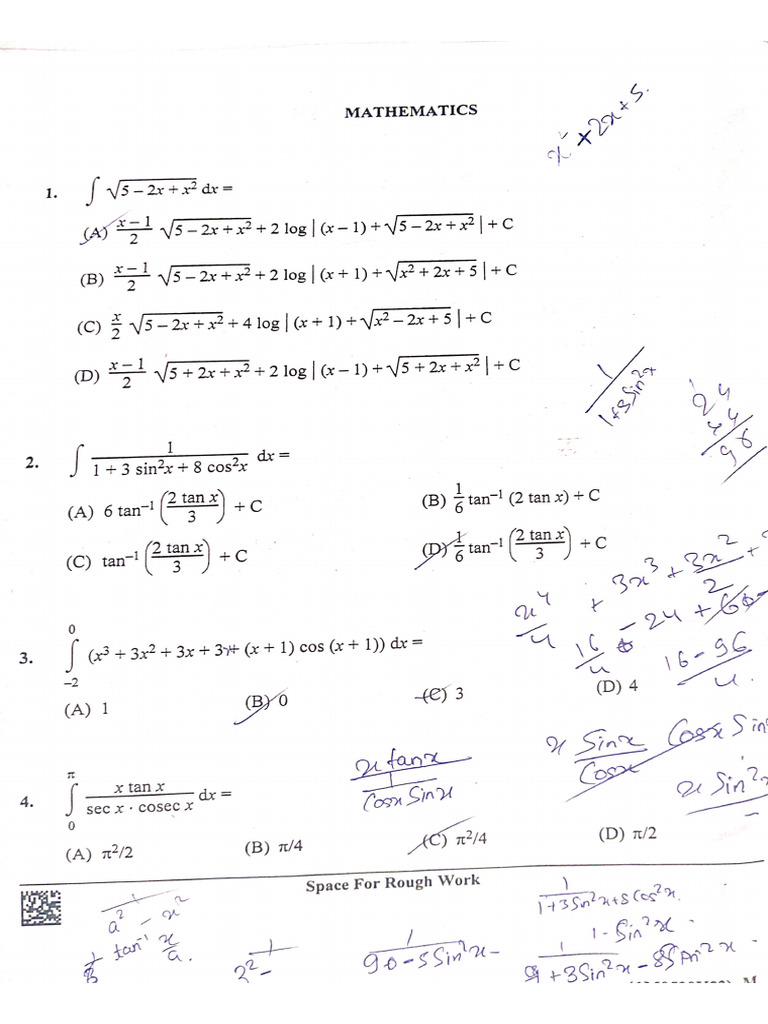 MATHEMATICS
x² + 2x + 5.
1. ∫ √(5 – 2x + x²) dx =
(A) (x – 1)/2 √(5 – 2x + x²) + 2 log | (x – 1) + √(5 – 2x + x²) | + C
(B) (x – 1)/2 √(5 – 2x + x²) + 2 log | (x + 1) + √(x² + 2x + 5) | + C
(C) x/2 √(5 – 2x + x²) + 4 log | (x + 1) + √(x² – 2x + 5) | + C
(D) (x – 1)/2 √(5 + 2x + x²) + 2 log | (x – 1) + √(5 + 2x + x²) | + C
24
44
96
2. ∫ 1/(1 + 3 sin²x + 8 cos²x) dx =
(A) 6 tan⁻¹ (2 tan x/3) + C (B) 1/6 tan⁻¹ (2 tan x) + C
(C) tan⁻¹ (2 tan x/3) + C (D) 1/6 tan⁻¹ (2 tan x/3) + C
x⁴/4 + 3x³ + 3x²/2 +
16/4 – 24 +
16 – 96
4.
3. ∫₋₂⁰ (x³ + 3x² + 3x + 3 + (x + 1) cos (x + 1)) dx =
(A) 1 (B) 0 (C) 3 (D) 4
x Sinx/Cosx Cosx Sin
x tanx/Cosx Sinx
x Sin²x
4. ∫₀^π x tan x/(sec x · cosec x) dx =
(A) π²/2 (B) π/4 (C) π²/4 (D) π/2
Space For Rough Work
1/(a² – x²)
tan⁻¹ x/a.
1/(3² –
1/(90 – 5 Sin²x –
1/(1 + 3 Sin²x + 8 Cos²x.
1 - Sin²x.
1/(9 + 3 Sin²x – 8 Sin²x